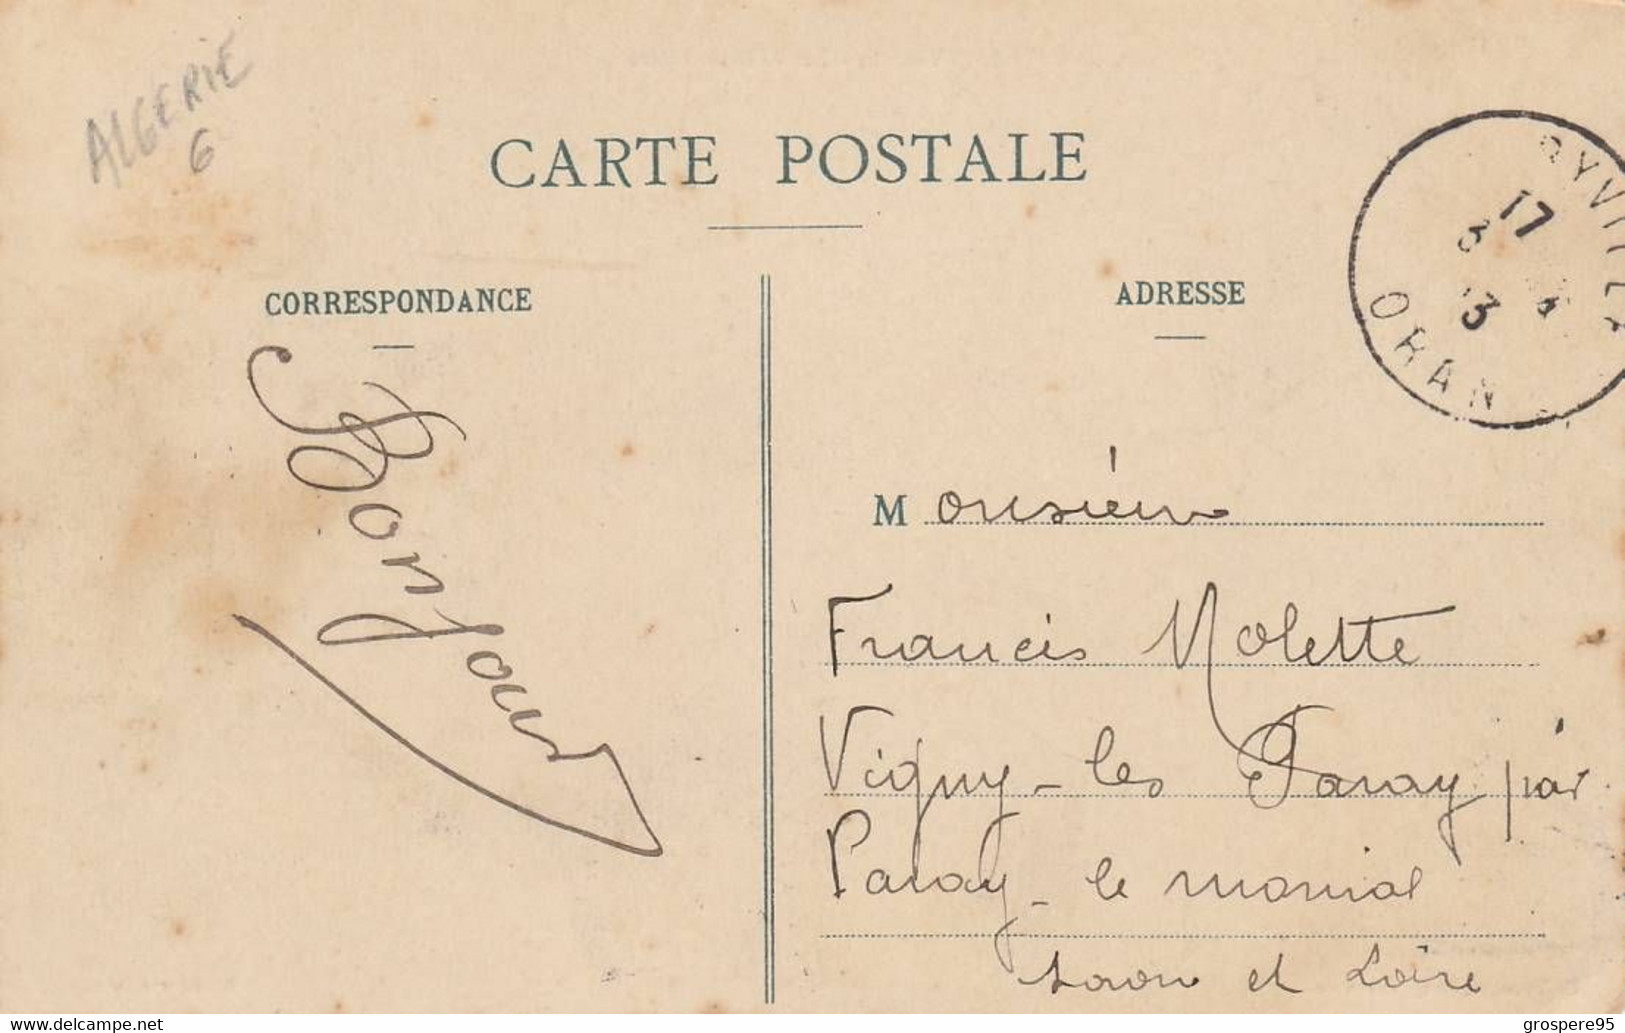 ALGERIE
6
CARTE POSTALE
CORRESPONDANCE
Bonjour
ADRESSE
RYVILLE
17
6
13
ORAN
Monsieur
Francis Molette
Vigny-les Paray par
Paray-le monial
Saone et Loire
www.delcampe.net
grospere95